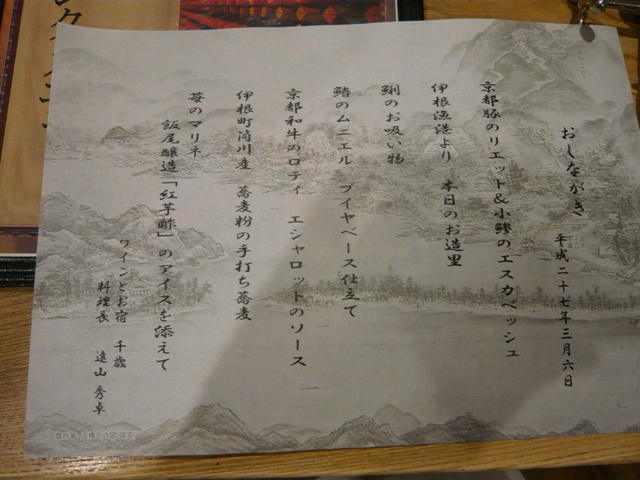 おしながき
平成二十七年三月六日
京都豚のリエット&小鯵のエスカベッシュ
伊根漁港より 本日のお造里
鯏のお吸い物
鰆のムニエル ブイヤベース仕立て
京都和牛のロティ エシャロットのソース
伊根町筒川産 蕎麦粉の手打ち蕎麦
苺のマリネ
飯尾醸造「紅芋酢」のアイスを添えて
ワインとお宿 千歳
料理長 遠山 秀卓